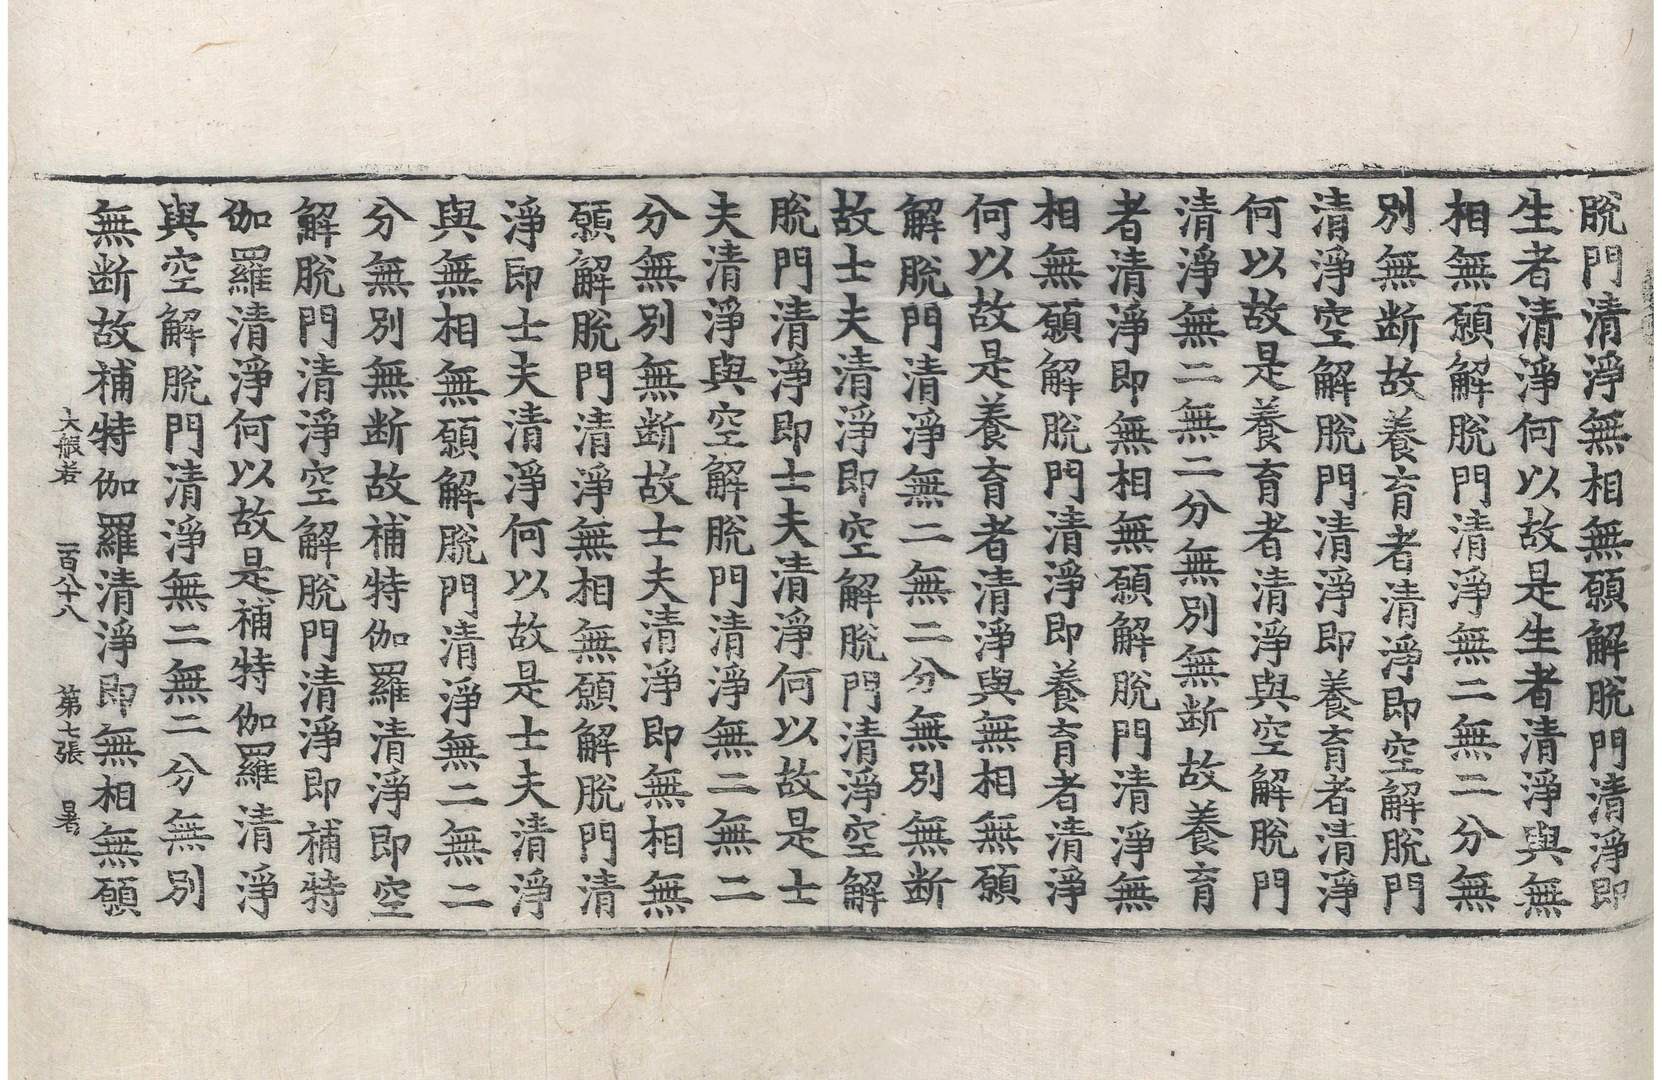 脫門清淨無相無願解脫門清淨即
生者清淨何以故是生者清淨與無
相無願解脫門清淨無二無二分無
別無断故養育者清淨即空解脫門
清淨空解脫門清淨即養育者清淨
何以故是養育者清淨與空解脫門
清淨無二無二分無別無断故養育
者清淨即無相無願解脫門清淨無
相無願解脫門清淨即養育者清淨
何以故是養育者清淨與無相無願
解脫門清淨無二無二分無別無断
故士夫清淨即空解脫門清淨空解
脫門清淨即士夫清淨何以故是士
夫清淨與空解脫門清淨無二無二
分無別無断故士夫清淨即無相無
願解脫門清淨無相無願解脫門清
淨即士夫清淨何以故是士夫清淨
與無相無願解脫門清淨無二無二
分無別無断故補特伽羅清淨即空
解脫門清淨空解脫門清淨即補特
伽羅清淨何以故是補特伽羅清淨
與空解脫門清淨無二無二分無別
無断故補特伽羅清淨即無相無願
大般若 一百八十八 第七張 暑